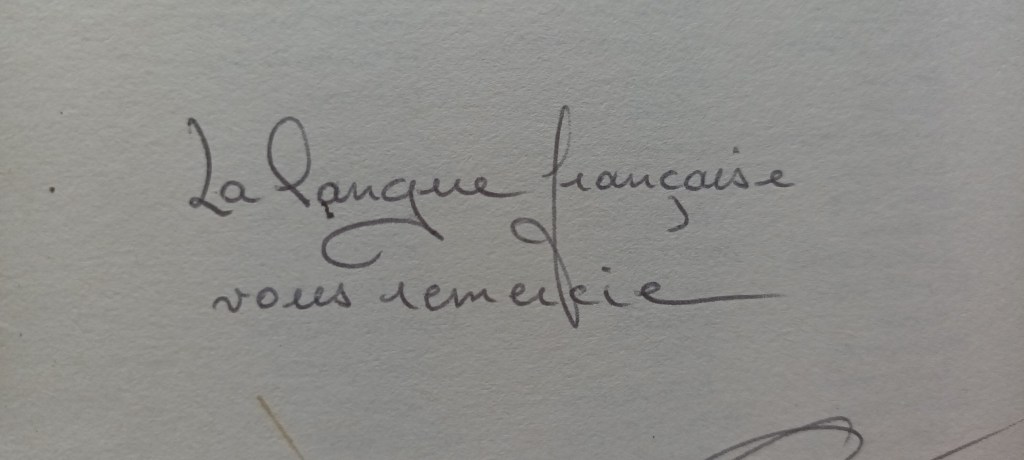 La langue française
vous remercie